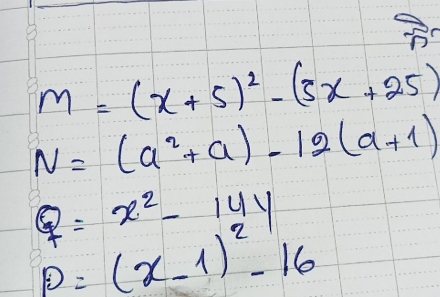 M = (x + 5)² - (5x + 25)
N = (a² + a) - 12(a + 1)
Q = x² - 144
P = (x - 1)² - 16